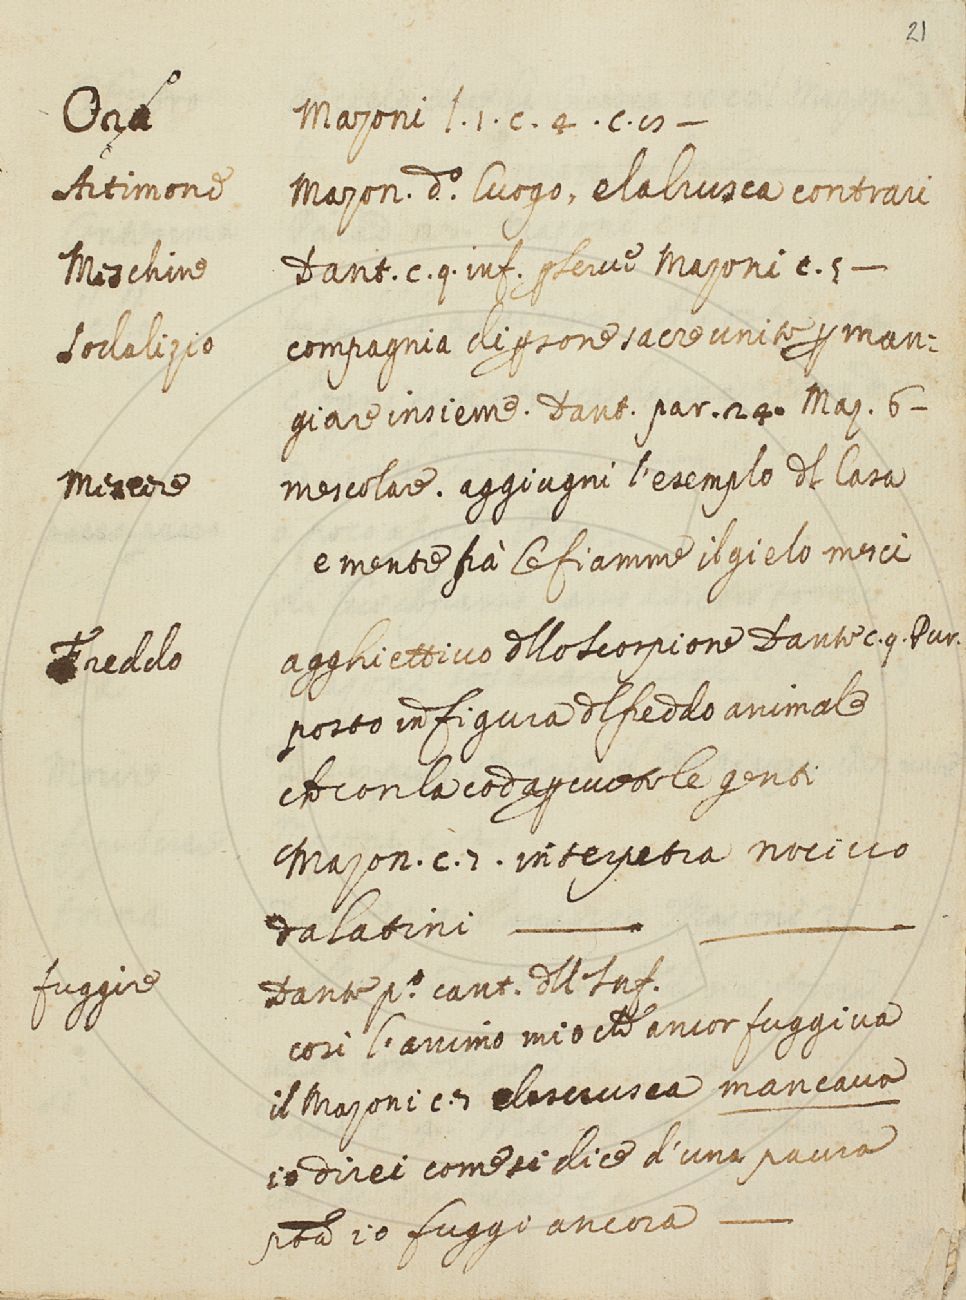 21
Ora Mazoni l. 1. c. 4. c. 15 —
Artimone Mazon. d.º luogo, e la crusca contrari
Meschine Dant. c. 9. inf. p serve Mazoni c. 5 —
Sodalizio compagnia di psone sacre unite p man:
giare insieme. Dant. par. 24. Maz. 6 —
Mescere mescolare. aggiugni l'esempio dl Casa
e mentre frà le fiamme il gielo mesci
Freddo agghiettivo dllo Scorpione Dante c. 9. Pur.
posto in figura dl freddo animale
che con la coda pcuote le genti
Mazon. c. 7. interpetra nocivo
da latini —
fuggire Dante pº. cant. dll Inf.
così l'animo mio ch ancor fuggiva
il Mazoni c. 7 e la crusca mancava
io direi come si dice d'una paura
pch io fuggo ancora —